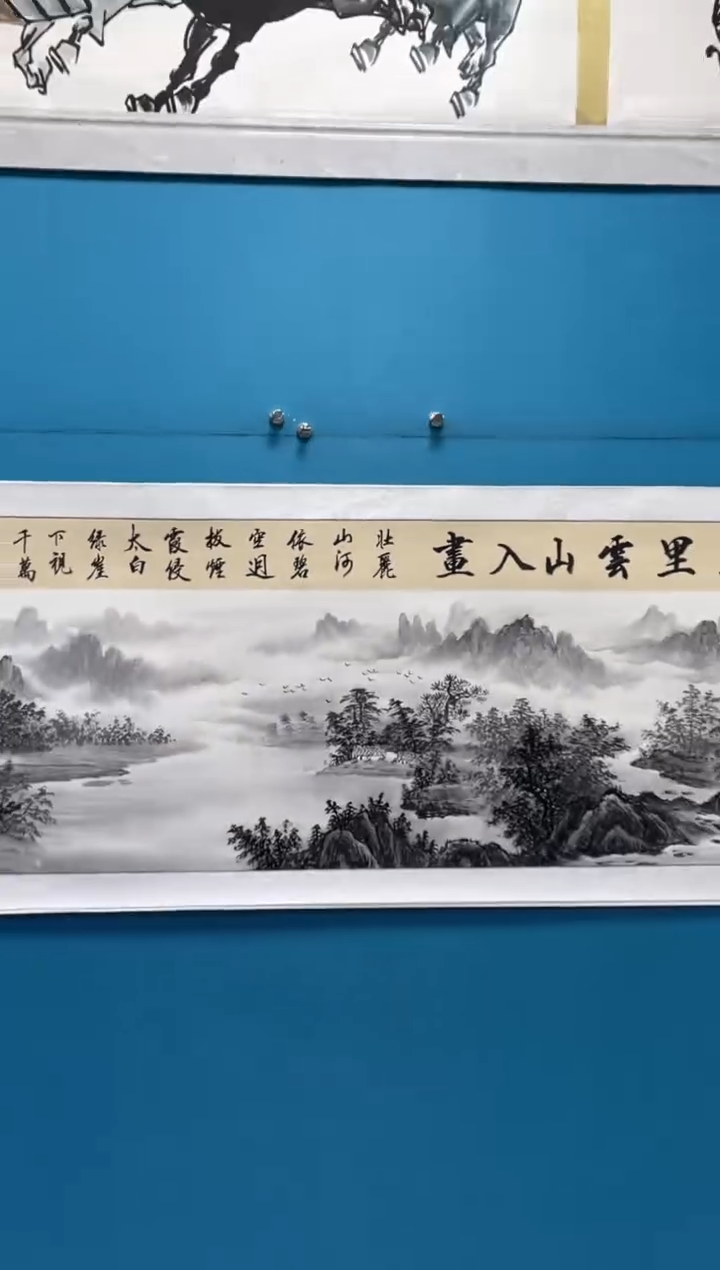 里雲山入畫
壯麗
山河
依碧
空迥
拔煙
霞侵
太白
綠崖
下視
千萬